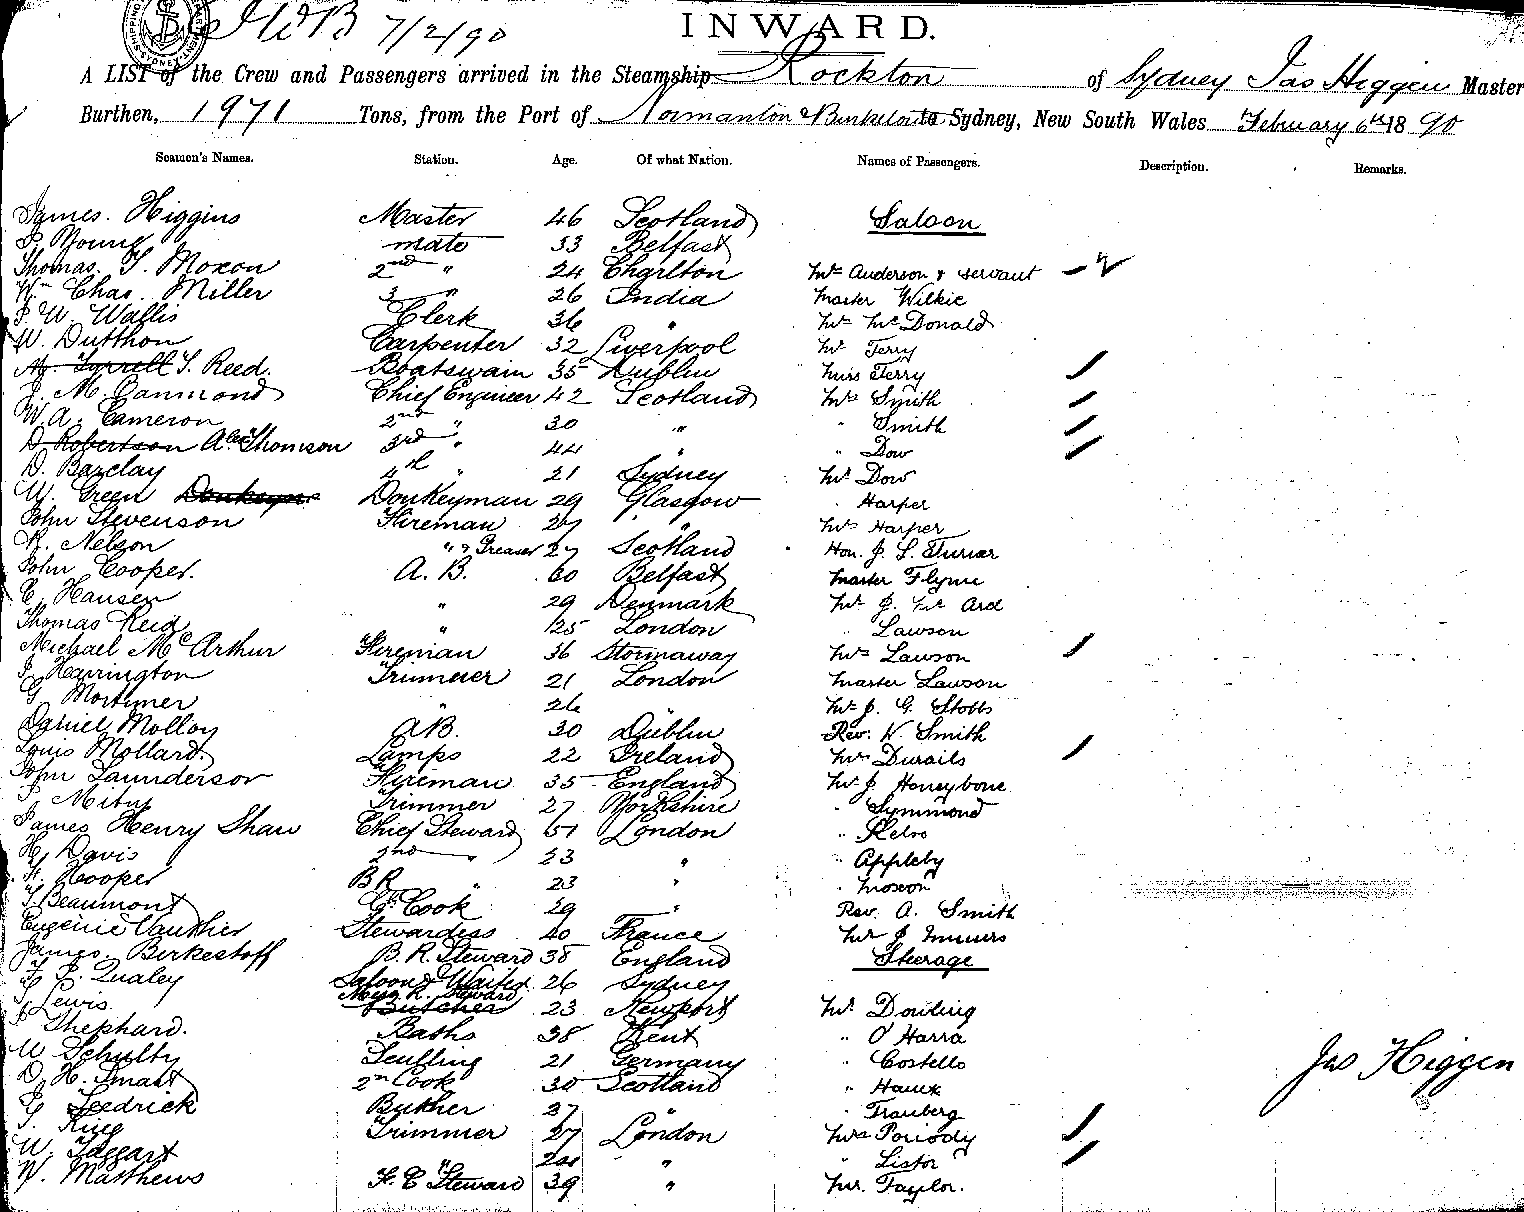 7/2/90
INWARD.
A LIST of the Crew and Passengers arrived in the Steamship Rockton of Sydney Jas Higgin Master
Burthen, 1971 Tons, from the Port of Normanton & to Sydney, New South Wales February 6th 1890
Seamen's Names. Station. Age. Of what Nation. Names of Passengers. Description. Remarks.
James Higgins Master 46 Scotland Saloon
Young mate 33 Belfast
Thomas Moxon 2nd " 24 Charlton Mrs Anderson & servant
Wm Chas. Miller 3 " 26 India Master Wilkie
W. Wallis Clerk 36 " Mr McDonald
W. Dutthon Carpenter 32 Liverpool Mr Terry
Tyrrell T. Reed. Boatswain 35 Dublin Miss Terry
J. McCammond Chief Engineer 42 Scotland Mrs Smith
W. A. Cameron 2nd " 30 " " Smith
D Robertson Alex Thomson 3rd " 44 " Dow
D. Barclay 4th " 21 Sydney Mr Dow
W. Green Donkeyman 29 Glasgow " Harper
John Stevenson Fireman 27 " Mrs Harper
R. Nelson " & Greaser 27 Scotland Hon. J. L.
John Cooper. A. B. 60 Belfast Master Flynn
C. Hansen " 29 Denmark Mr J. Mc Ard
Thomas Reid " 25 London " Lawson
Michael McArthur Fireman 36 Stornaway Mrs Lawson
J Harrington Trimmer 21 London Master Lawson
G. Mortimer " 26 Mr J. G. Stobbs
Daniel Molloy A.B. 30 Dublin Rev. W. Smith
Louis Mollard. Lamps 22 Ireland Mrs
John Saunderson Fireman 35 England Mr J Honeybone
Trimmer 27 Yorkshire " Symmond
James Henry Shaw Chief Steward 51 London " Kelso
H. Davis 2nd " 23 " " Appleby
H. Hooper B R " 23 " " Moxon
T. Beaumont Cf. Cook 29 " Rev. A. Smith
Eugenie Vauthier Stewardess 40 France Mr J
James Birkestoff B. R. Steward 38 England Sterage
Qualey Saloon Waiter 26 Sydney
Lewis Mess R. Steward Butcher 23 Newport Mr. Dowling
Shephard. Baths 38 Kent " O'Harra
W Schulty 21 Germany " Costello
D. H. Smart 2nd Cook 30 Scotland "
G. Leedrick Butcher 27 " " Trauberg
T. King Trimmer 27 London Mrs
W. Taggart " " " Lister
W. Matthews F. C Steward 39 " Mr. Taylor.
Jas Higgin